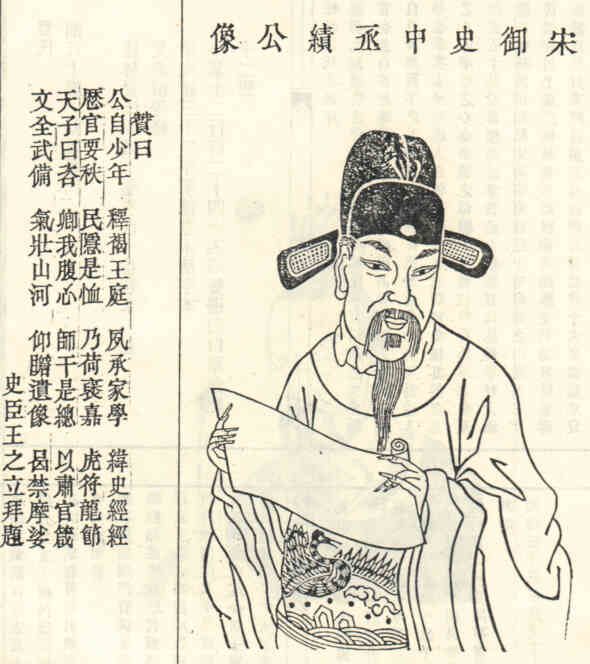 宋御史中丞績公像
贊曰
公自少年 釋褐王庭 夙承家學 緯史經經
厯官要秋 民隱是恤 乃荷褒嘉 虎符龍節
天子曰咨 卿我腹心 師干是總 以肅官箴
文全武備 氣壯山河 仰瞻遺像 曷禁摩娑
史臣王之立拜題